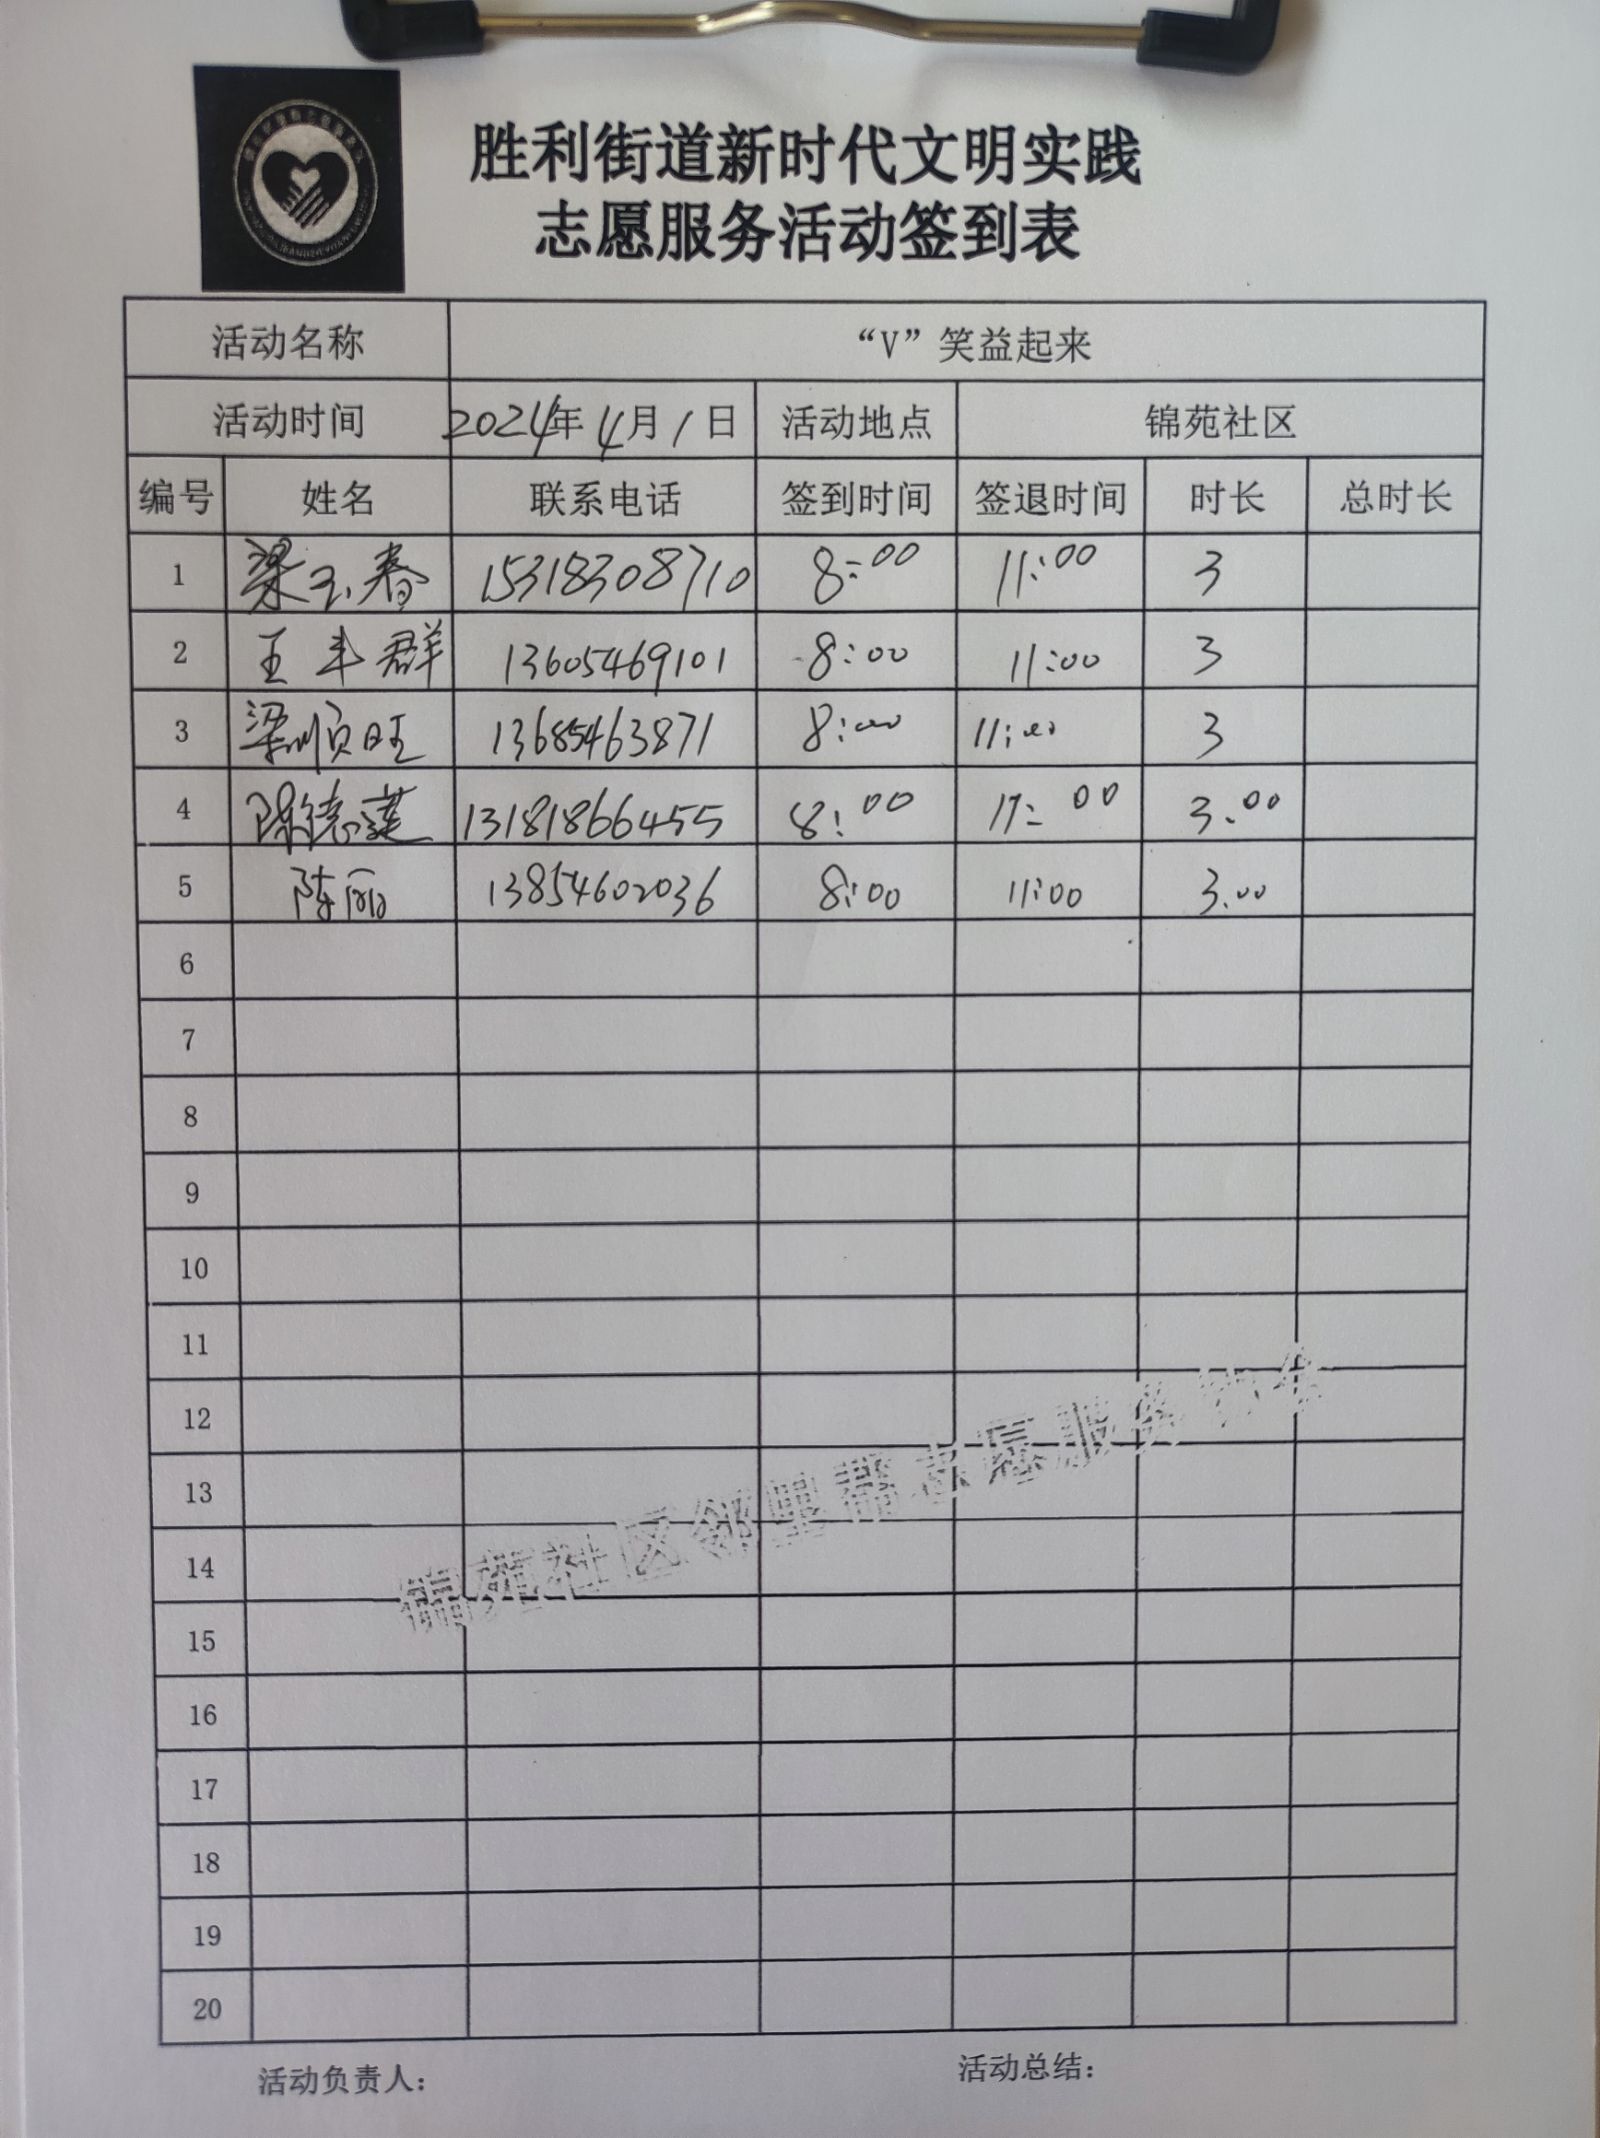 胜利街道新时代文明实践
志愿服务活动签到表
活动名称 “V”笑益起来
活动时间 2024年4月1日 活动地点 锦苑社区
编号 姓名 联系电话 签到时间 签退时间 时长 总时长
1 梁玉春 15318308710 8:00 11:00 3
2 王丰群 13605469101 8:00 11:00 3
3 梁顺旺 13685463871 8:00 11:00 3
4 陈德莲 13181866455 8:00 11:00 3.00
5 陈丽 13854602036 8:00 11:00 3.00
6
7
8
9
10
11
12
13
14
15
16
17
18
19
20
锦苑社区邻里帮志愿服务队伍
活动负责人： 活动总结：